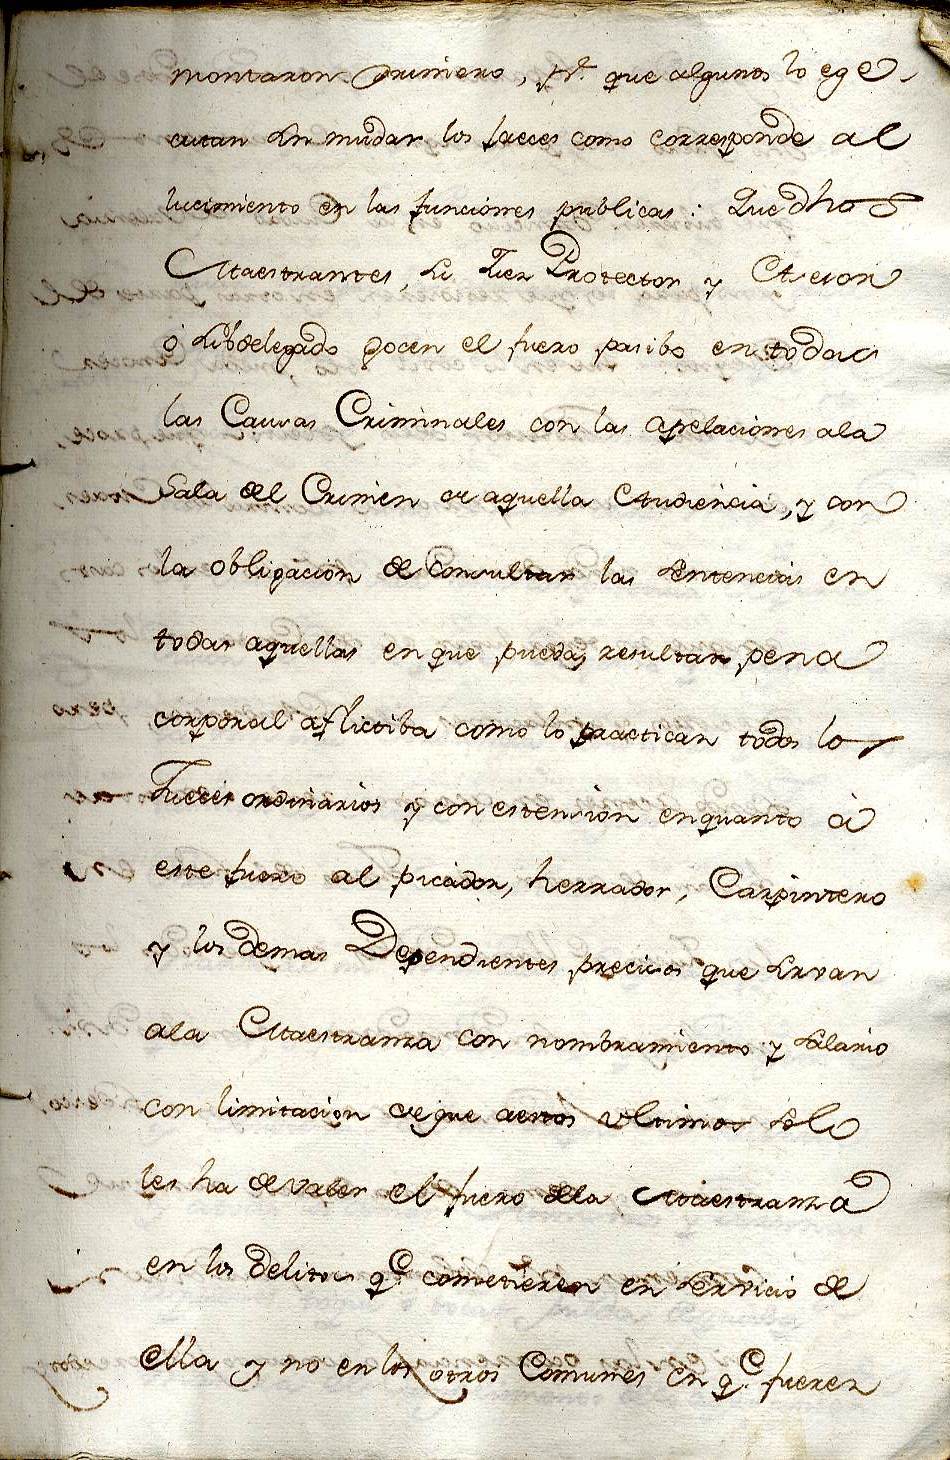 montaron primero, pr. que algunos lo ege-
cutan sin mudar los jaeces como corresponde al
lucimiento en las funciones publicas: Que dhos
Maestrantes, su Juez Protector y Asesor
ó subdelegado gocen el fuero pasibo en todas
las Causas Criminales con las apelaciones ala
Sala del Crimen de aquella Audiencia, y con
la obligacion de consultar las sentencias en
todas aquellas en que pueda resultar pena
corporal aflictiba como lo practican todos los
Jueces ordinarios y con estension en quanto à
este fuero al picador, herrador, Carpintero
y los demas Dependientes precisos que sirvan
ala Maestranza con nombramiento y salario
con limitacion de que aestos ultimos solo
les ha de valer el fuero dela Maestranza
en los delitos qe. cometieren en servicio de
ella y no en los otros Comunes en qe. fueren